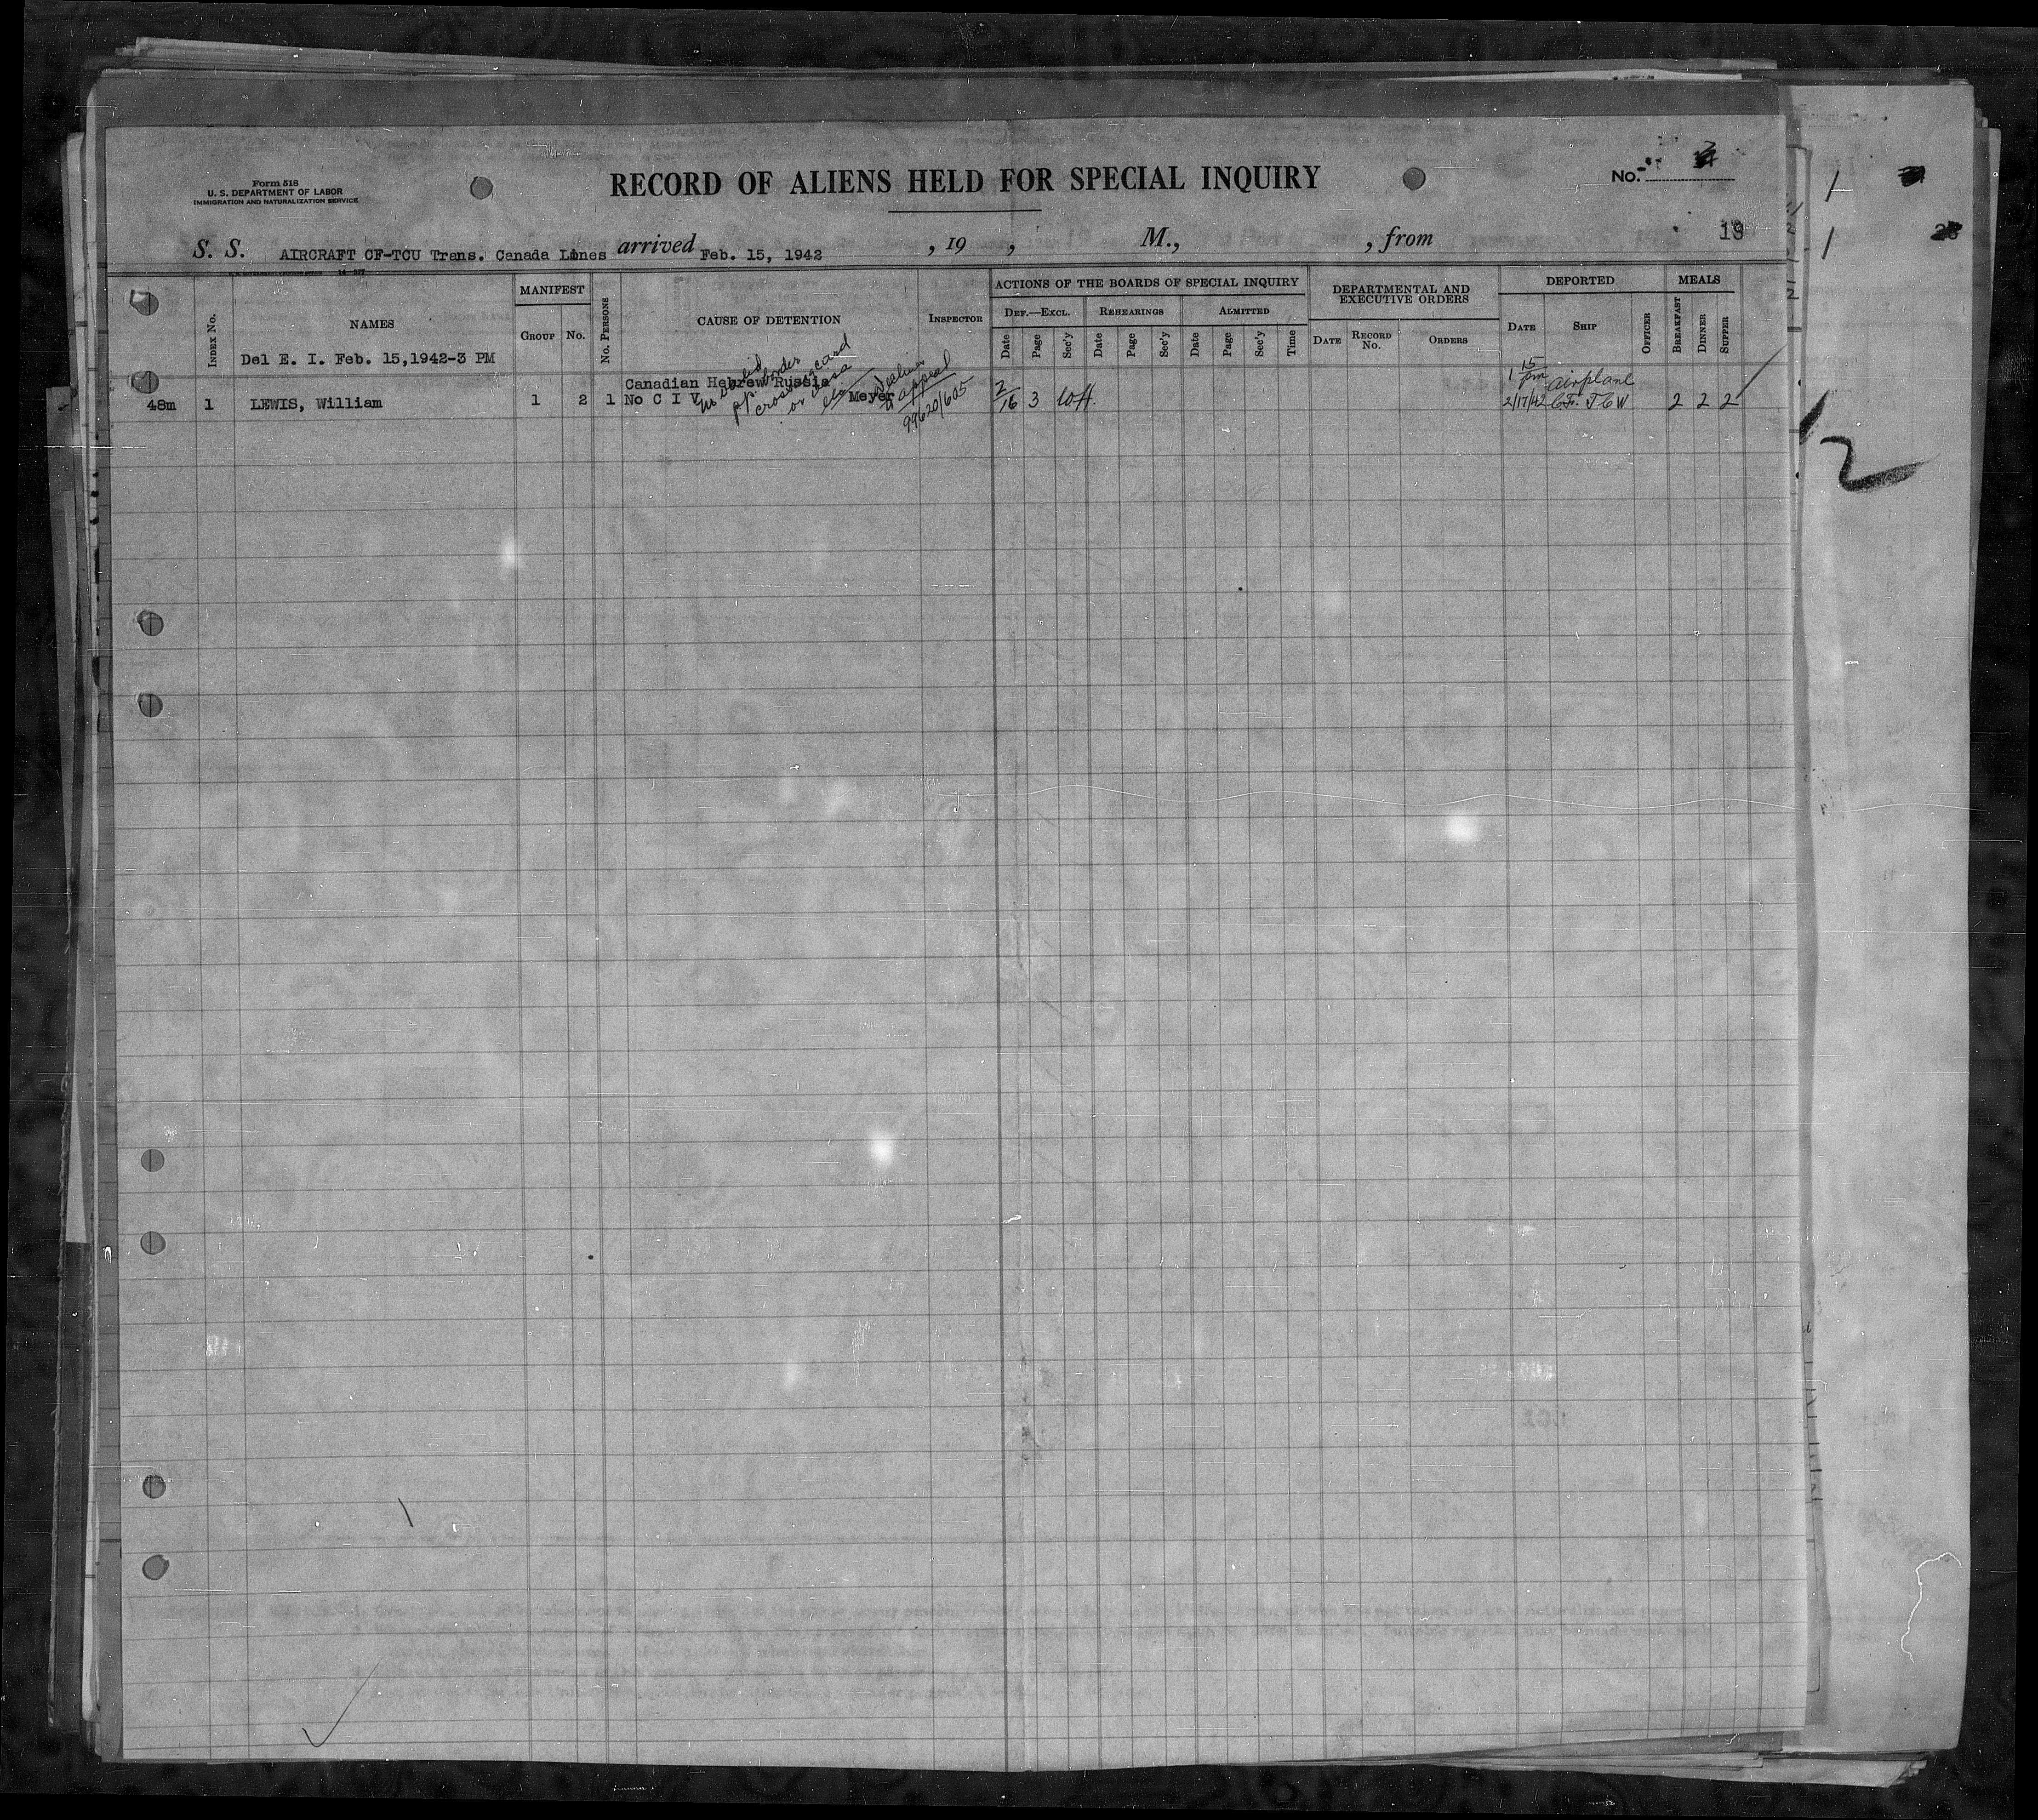 Form 518
U. S. DEPARTMENT OF LABOR
IMMIGRATION AND NATURALIZATION SERVICE
RECORD OF ALIENS HELD FOR SPECIAL INQUIRY
No.
S. S. AIRCRAFT CF-TCU Trans. Canada Lines arrived Feb. 15, 1942 , 19 , M., , from 13
INDEX No.
NAMES
Del E. I. Feb. 15,1942-3 PM
MANIFEST
GROUP No.
No. PERSONS
CAUSE OF DETENTION
INSPECTOR
ACTIONS OF THE BOARDS OF SPECIAL INQUIRY
DEF.—EXCL. REHEARINGS ADMITTED
Date Page Sec'y Date Page Sec'y Date Page Sec'y Time
DEPARTMENTAL AND
EXECUTIVE ORDERS
DATE RECORD No. ORDERS
DEPORTED
DATE SHIP OFFICER
MEALS
BREAKFAST DINNER SUPPER
Canadian Hebrew Russia
48m 1 LEWIS, William 1 2 1 No C I V Meyer
no valid
pp. border
crossing card
or visa
appeal
99620/605
2/16 3
1 15 pm airplane
2/17/42 CF. TCW 2 2 2
1
1
2